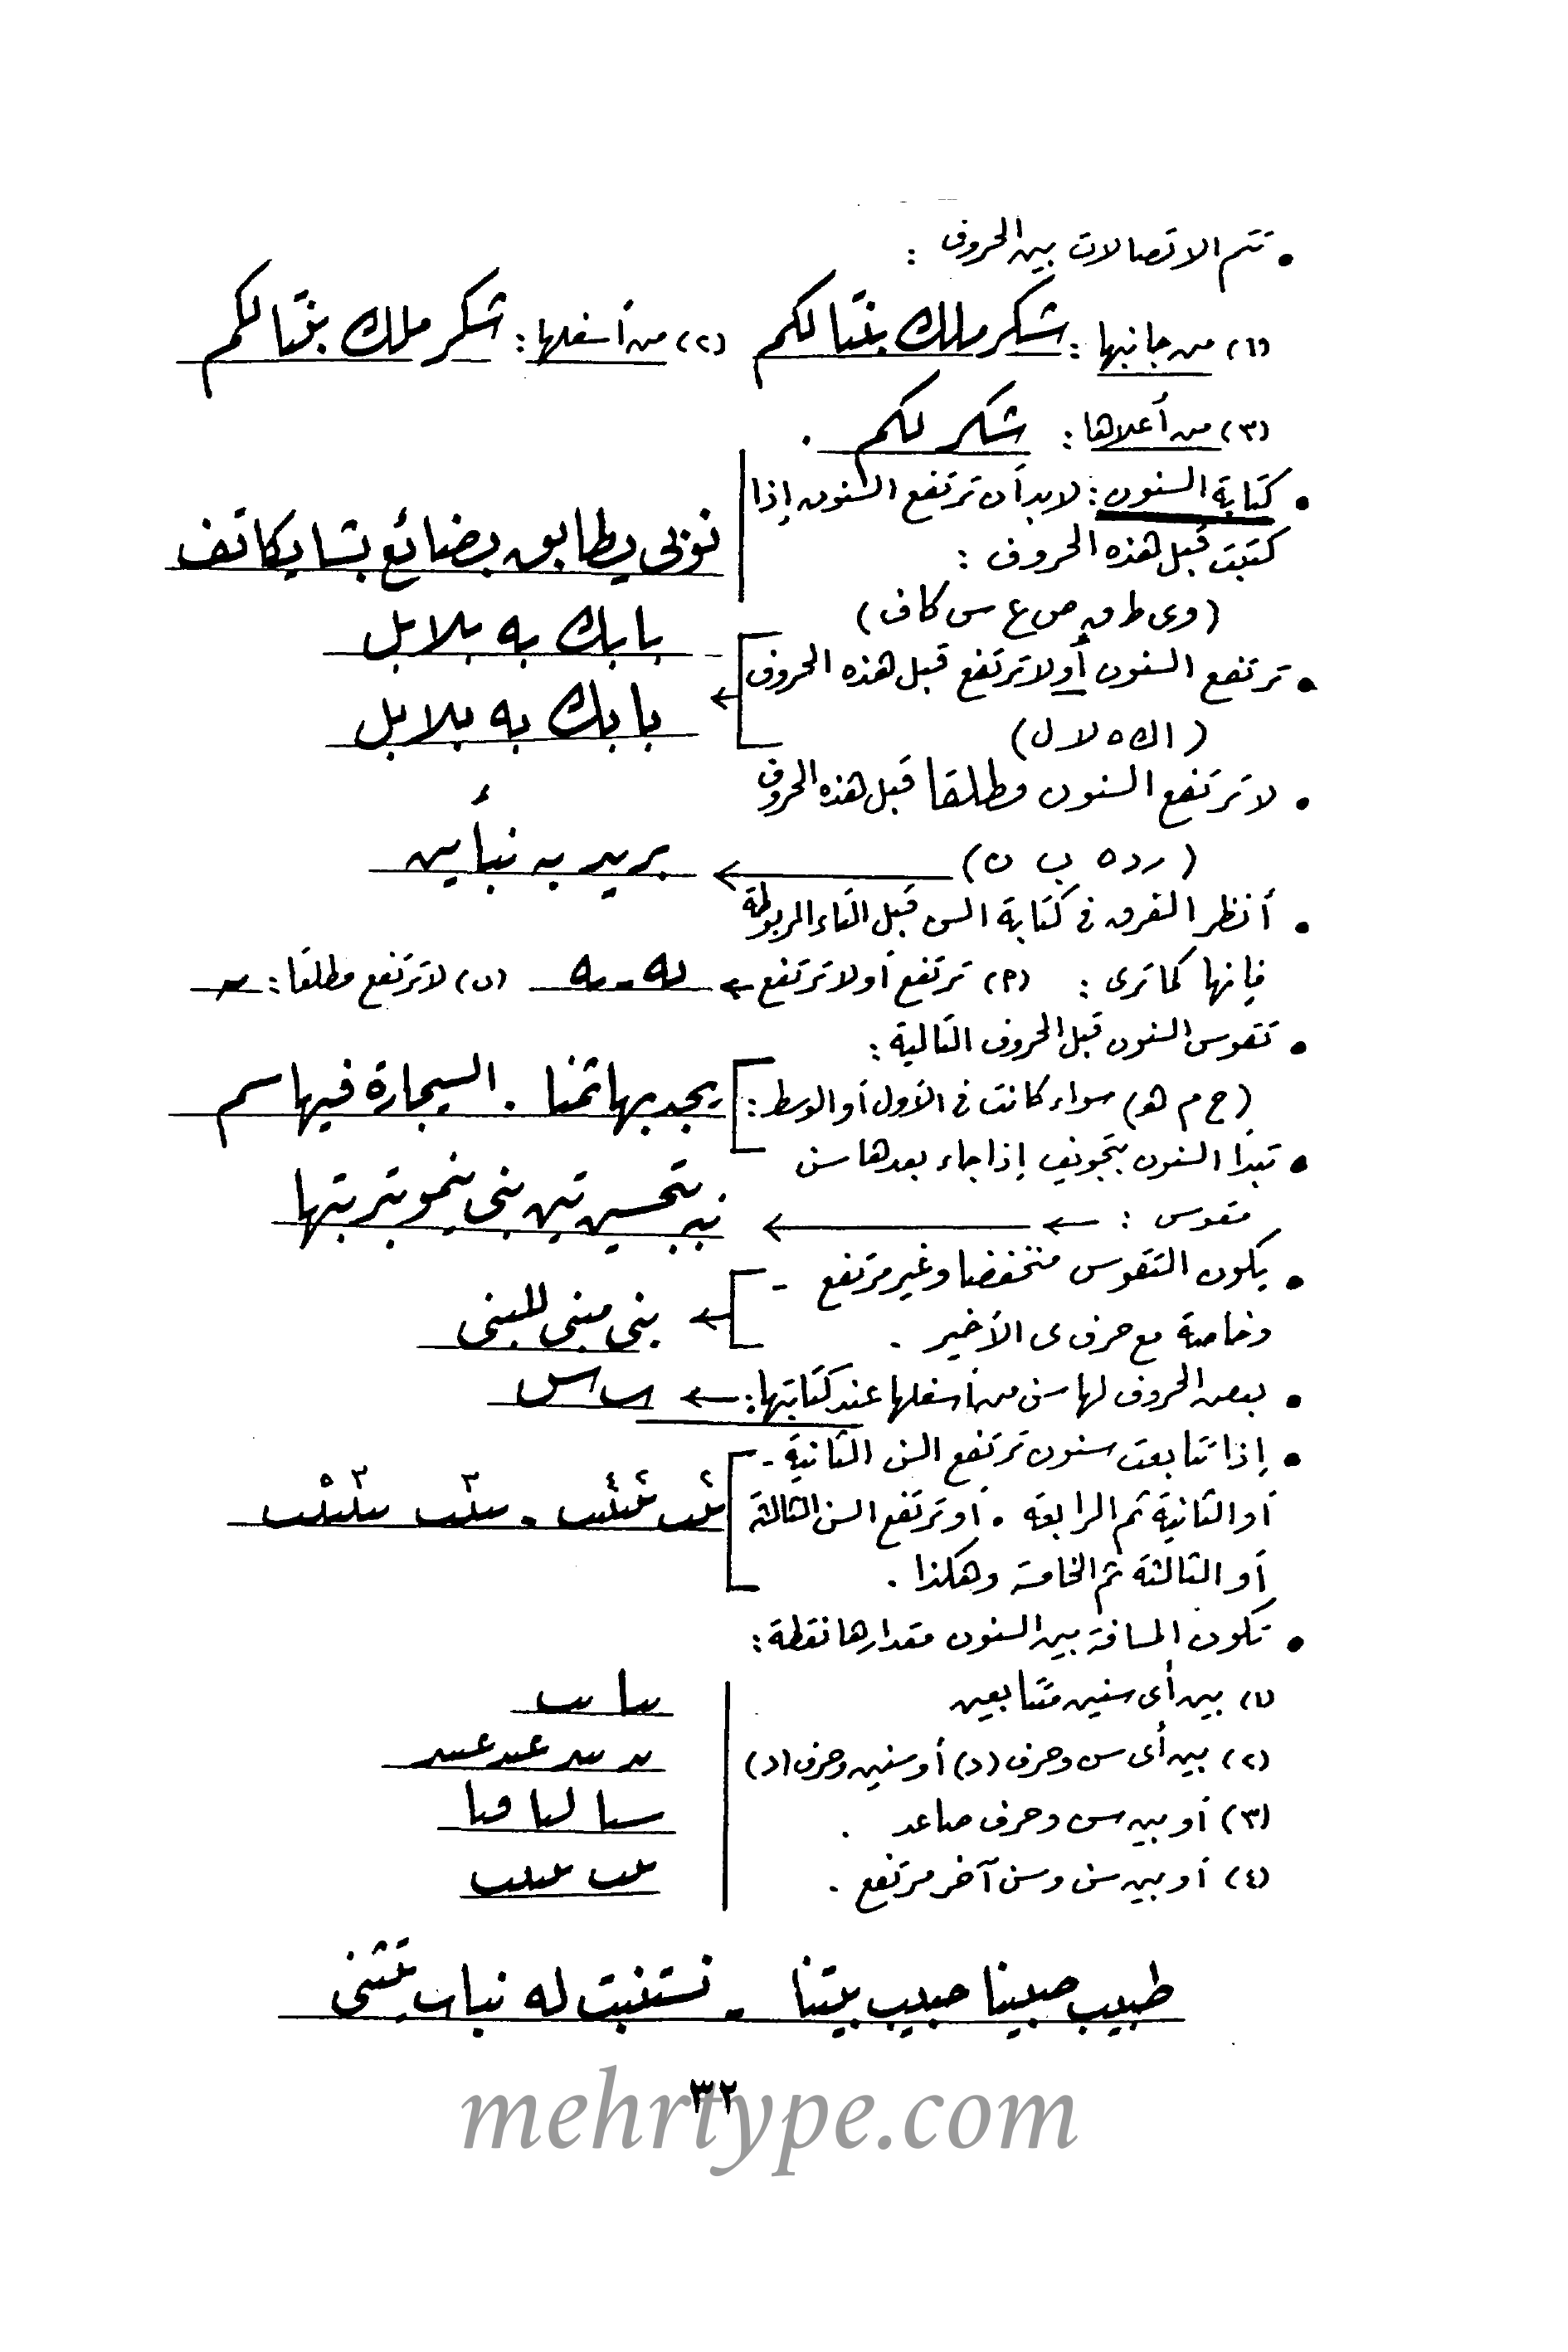 • تتم الاتصالات بين الحروف :
(١) من جانبها : شكر ملك بقتالكم (٢) من أسفلها : شكر ملك بقتالكم
(٣) من أعلاها : شكر لكم .
• كتابة السنون : لابد أن ترتفع السنون إذا
كتبت قبل هذه الحروف :
نوبى يطابق بضائع بشا يكاتف
(و ى ط ق ص ع س كاف)
بابك به بلابل
• ترتفع السنون أو لا ترتفع قبل هذه الحروف
بابك به بلابل
(ا ك ه لا ل)
• لا ترتفع السنون مطلقا قبل هذه الحروف
(ر د ه ب ن) ← بريد به نبأ يبن
• أنظر الفرق فى كتابة السن قبل التاء المربوطة
فإنها كما ترى : (٢) ترتفع أو لا ترتفع ← (ب) لا ترتفع مطلقا :
• تتقوس السنون قبل الحروف التالية :
(ح م هـ) سواء كانت فى الأول أو الوسط : يجد بها ثمنا . السيجارة فيها سم
• تبدأ السنون بتجويف إذا جاء بعدها سن
مقوس : ← بتحسين تبن بنى ينمو بتربتها
• يكون التقوس منخفضا وغير مرتفع -
وخاصة مع حرف ى الأخير . ← بنى مبنى للبنى
• بعض الحروف لها سن من أسفلها عند كتابتها : ←
• إذا تتابعت سنون ترتفع السن الثانية -
أو الثانية ثم الرابعة . أو ترتفع السن الثالثة
٢ ٢ ٤ ٣ ٣ ٥
أو الثالثة ثم الخامسة وهكذا .
• تكون المسافة بين السنون مقدارها نقطة :
(١) بين أى سنين متتابعين
(٢) بين أى سن وحرف (د) أو سنين وحرف (د)
(٣) أو بين سن وحرف صاعد .
(٤) أو بين سن وسن آخر مرتفع .
طبيب حبيبنا حبيب بيتنا - نستنبت له نبات يتثنى
٣٢
mehrtype.com